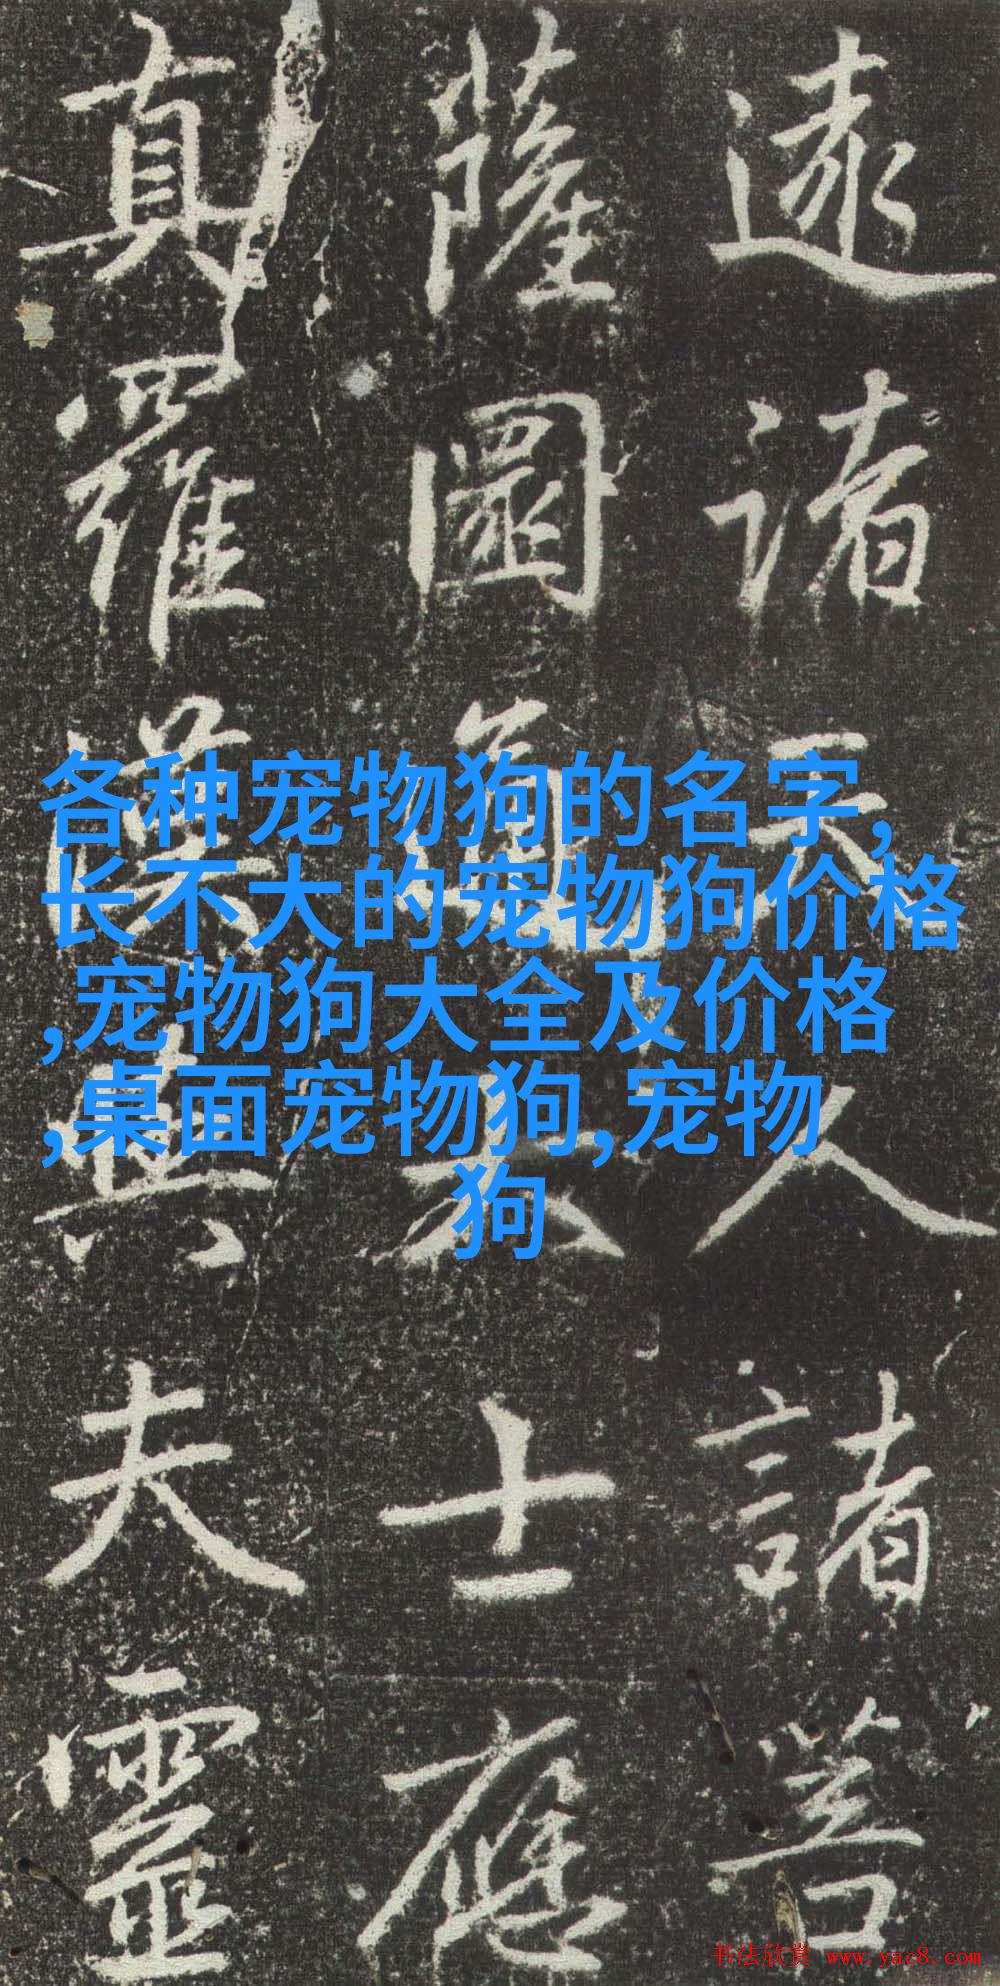 遠諸天人諸菩
薩圓覺大士應
真羅漢與夫靈
各种宠物狗的名字,
长不大的宠物狗价格
,宠物狗大全及价格
,桌面宠物狗,宠物
狗
书法欣赏 www.yac8.com